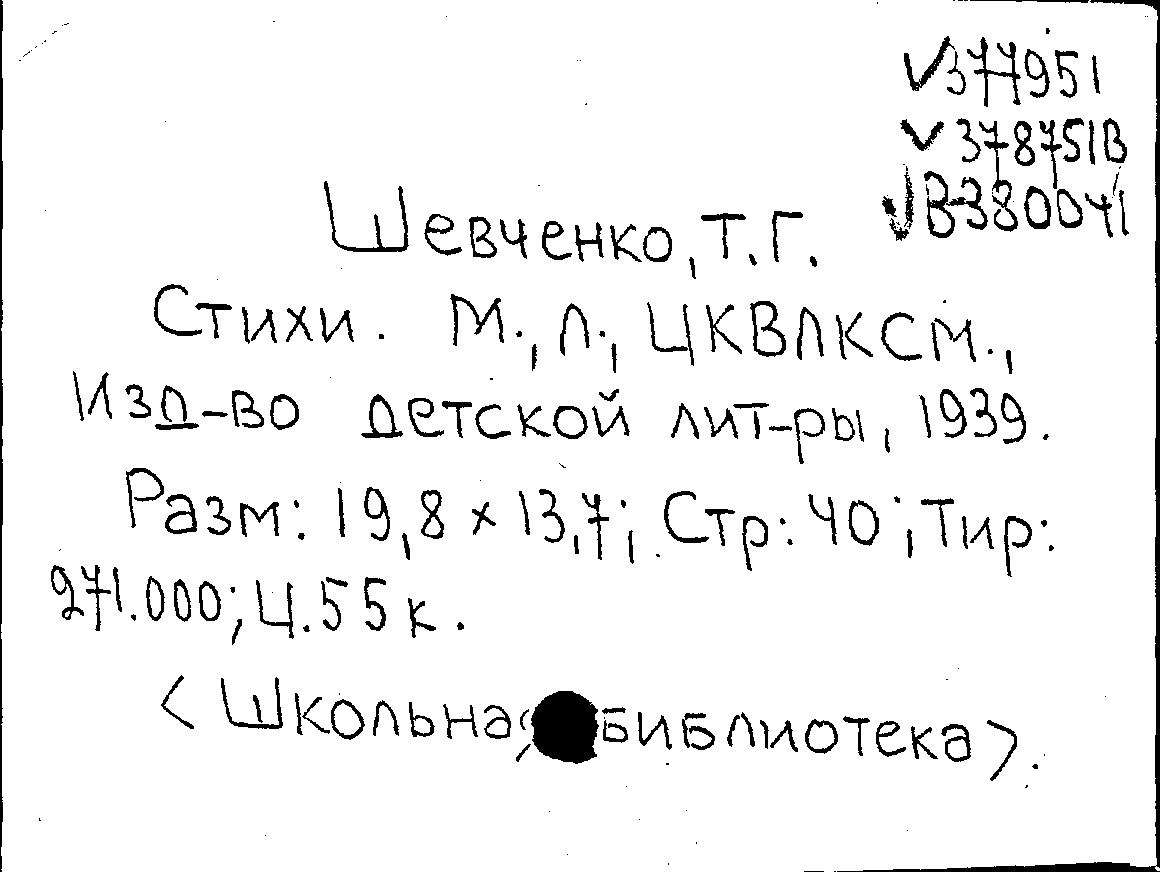 ✓377951
✓378751В
✓В-380041
Шевченко, Т.Г.
Стихи. М., Л., ЦКВЛКСМ.,
Изд-во детской лит-ры, 1939.
Разм: 19,8 × 13,7; Стр: 40; Тир:
271.000; Ц.55к.
<Школьная библиотека>.